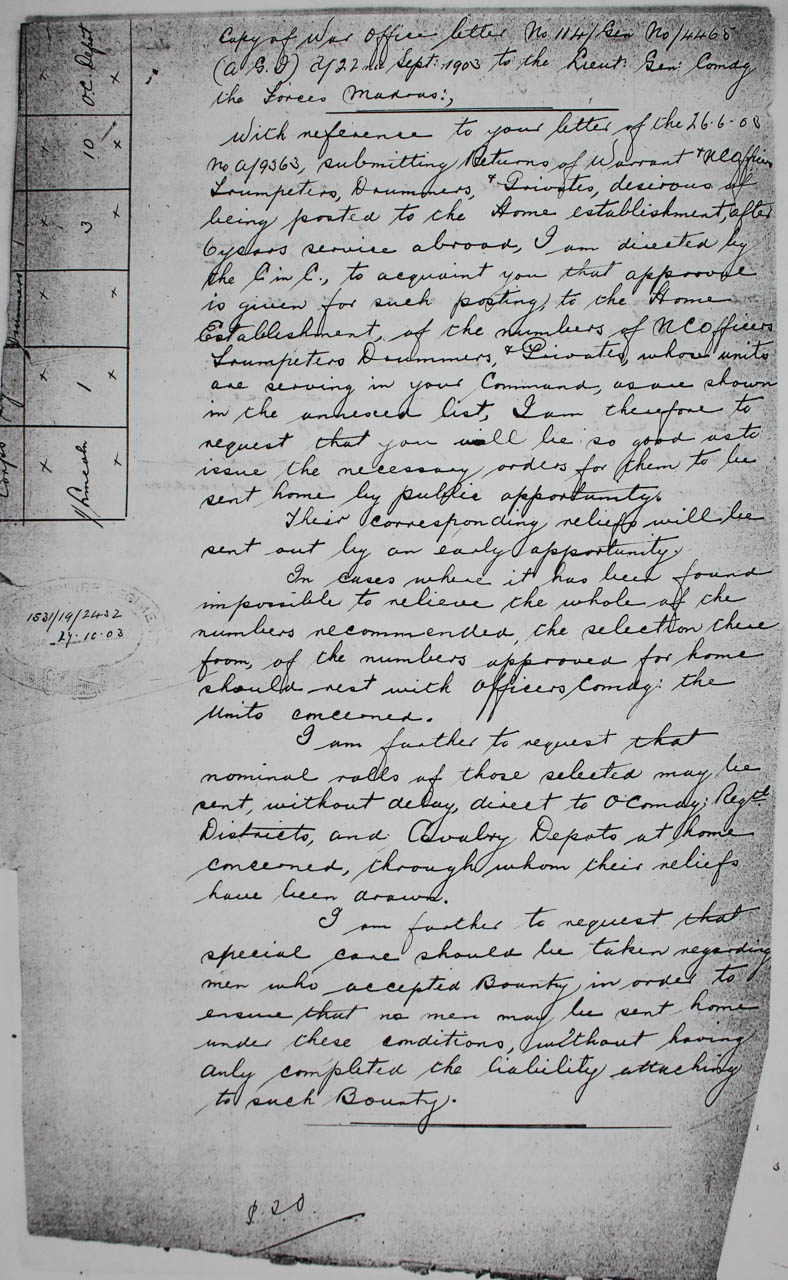 Copy of War Office letter No 114/Gen No/4465
(A.G.I) d/22nd Sept: 1903 to the Lieut: Gen: Comdg
the Forces Madras:,
With reference to your letter of the 26.6.03
No A/9363, submitting Returns of Warrant & NCOfficers
Trumpeters, Drummers, & Privates, desirous of
being posted to the Home establishment, after
6 years service abroad, I am directed by
the C in C., to acquaint you that approval
is given for such posting, to the Home
Establishment, of the numbers of NCOfficers
Trumpeters Drummers, & Privates, whose units
are serving in your Command, as are shown
in the annexed list, I am therefore to
request that you will be so good as to
issue the necessary orders for them to be
sent home by public opportunity.
Their corresponding reliefs will be
sent out by an early opportunity.
In cases where it has been found
impossible to relieve the whole of the
numbers recommended, the selection there
from, of the numbers approved for home
should rest with Officers Comdg: the
Units concerned.
I am further to request that
nominal rolls of those selected may be
sent, without delay, direct to O'Comdg; Regtl
Districts, and Cavalry Depots at home
concerned, through whom their reliefs
have been drawn.
I am further to request that
special care should be taken regarding
men who accepted Bounty, in order to
ensure that no men may be sent home
under these conditions, without having
duly completed the liability attaching
to such Bounty.
P.T.O.
O.C. Depot
x x
10
x x
3
x x
x x
1
x x
x x
Drummers
Corps
1531/19/2432
27.10.03